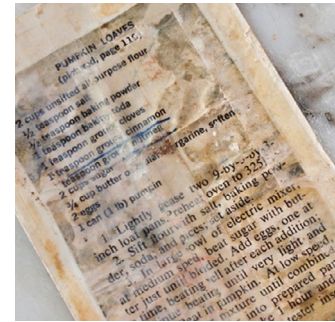 PUMPKIN LOAVES
(pictured, page 115)
2 cups unsifted all-purpose flour
½ teaspoon salt
½ teaspoon baking powder
1 teaspoon baking soda
1 teaspoon ground cloves
1 teaspoon ground cinnamon
1 teaspoon ground
2 cups sugar
¾ cup butter or margarine, soften
2 eggs
1 can (1 lb) pumpkin
1. Lightly grease two 9-by-5-by-3-
inch loaf pans. Preheat oven to 325
2. Sift flour with salt, baking pow-
der, soda, and spices; set aside.
3. In large bowl of electric mixer,
at medium speed, beat sugar with but-
ter just until blended. Add eggs, one at
a time, beating well after each addition,
continue beating until very light and
Beat in pumpkin. At low spe
mixture until combin
into prepared
hour
tester